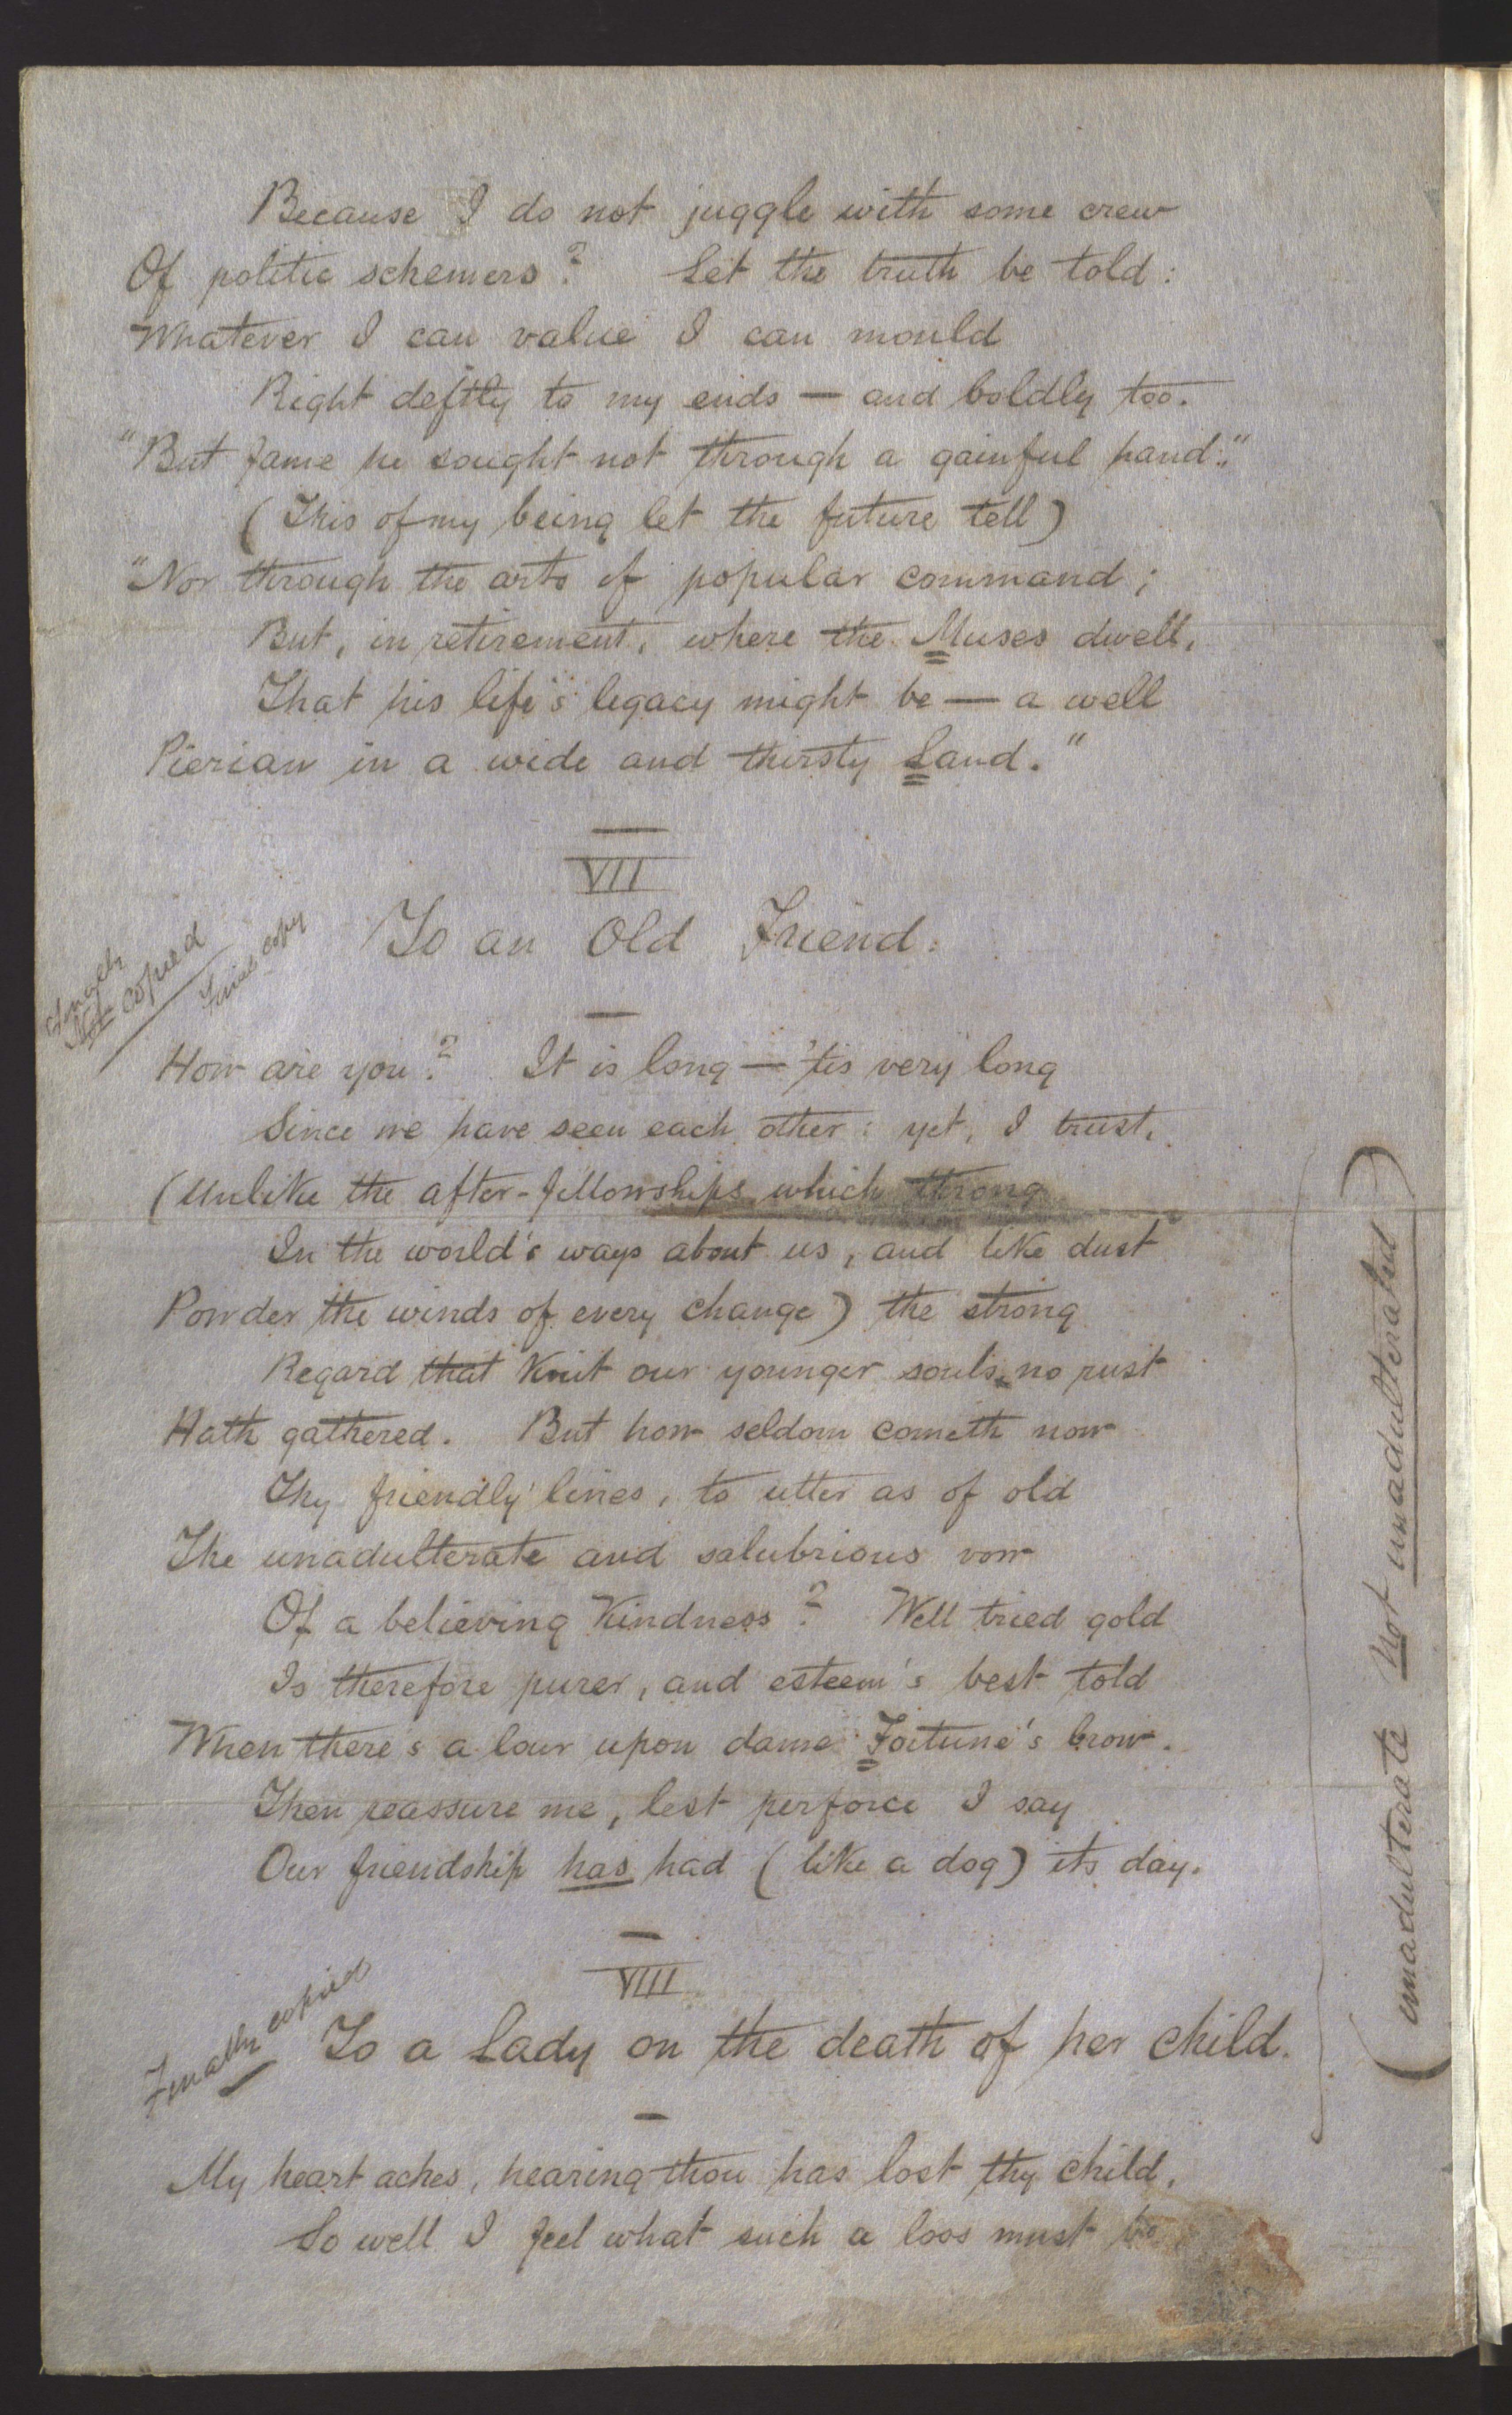 Because I do not juggle with some crew
Of politic schemers? Let the truth be told:
Whatever I can value I can mould
Right deftly to my ends — and boldly too.
"But fame he sought not through a gainful hand:"
(This of my being let the future tell)
"Nor through the arts of popular command;
But, in retirement, where the Muses dwell,
That his life's legacy might be — a well
Pierian in a wide and thirsty Land."
VII
To an Old Friend.
Finally
copied
Final copy
How are you? It is long — 'tis very long
Since we have seen each other: yet, I trust,
(Unlike the after-fellowships which throng
In the world's ways about us, and like dust
Powder the winds of every change) the strong
Regard that Knit our younger souls, no rust
Hath gathered. But how seldom cometh now
Thy friendly lines, to utter as of old
The unadulterate and salubrious vow
Of a believing Kindness? Well tried gold
Is therefore purer, and esteem's best told
When there's a lour upon dame Fortune's brow.
Then reassure me, lest perforce I say
Our friendship has had (like a dog) its day.
(unadulterate not unadulterated)
VIII
Finally copied
To a Lady on the death of her child.
My heart aches, hearing thou has lost thy child,
So well I feel what such a loss must be